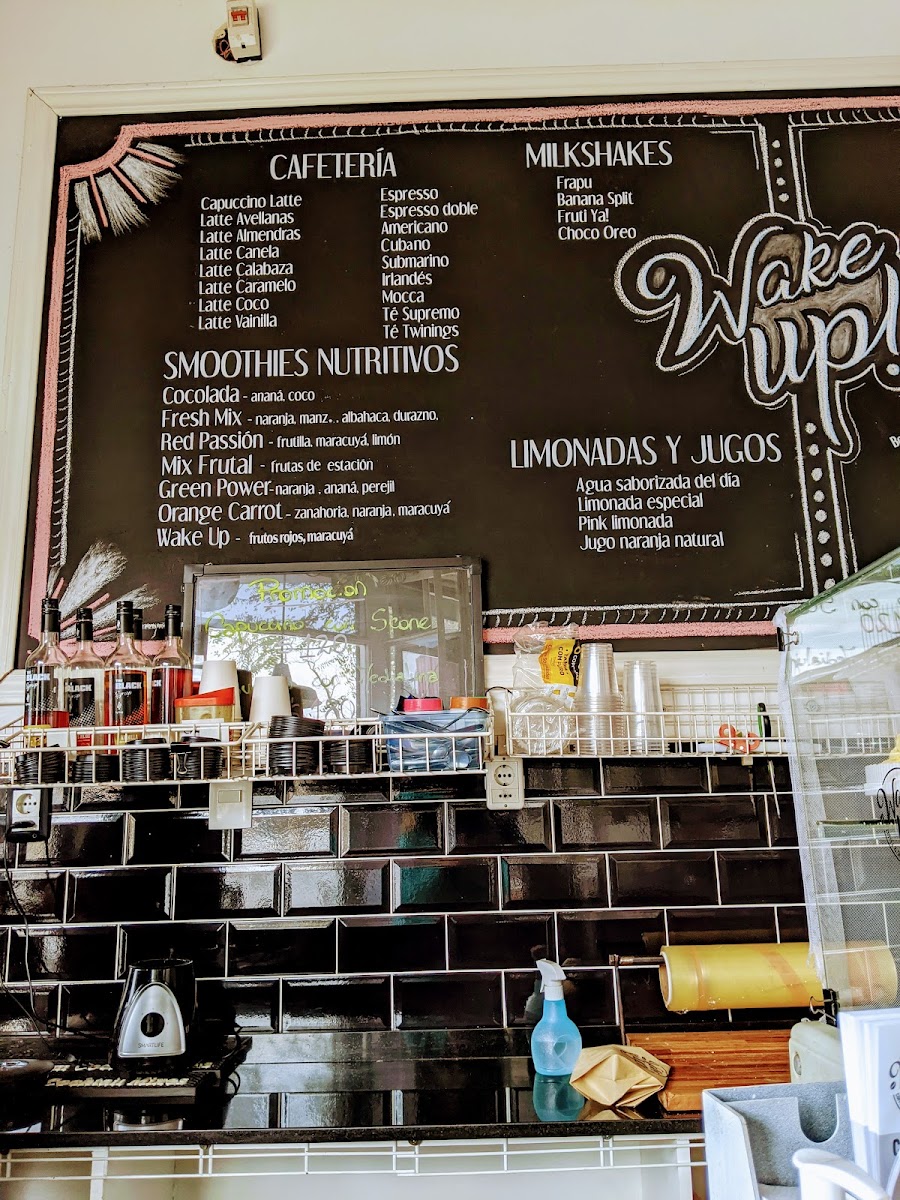 CAFETERÍA
Capuccino Latte
Latte Avellanas
Latte Almendras
Latte Canela
Latte Calabaza
Latte Caramelo
Latte Coco
Latte Vainilla
Espresso
Espresso doble
Americano
Cubano
Submarino
Irlandés
Mocca
Té Supremo
Té Twinings
MILKSHAKES
Frapu
Banana Split
Fruti Ya!
Choco Oreo
Wake
up!
SMOOTHIES NUTRITIVOS
Cocolada - ananá, coco
Fresh Mix - naranja, manz.. albahaca, durazno.
Red Passión - frutilla, maracuyá, limón
Mix Frutal - frutas de estación
Green Power- naranja . ananá, perejil
Orange Carrot - zanahoria, naranja, maracuyá
Wake Up - frutos rojos, maracuyá
LIMONADAS Y JUGOS
Agua saborizada del día
Limonada especial
Pink limonada
Jugo naranja natural
Promocion
Capuccino con Scone
BLACK
BLACK
BLACK
BLACK
SMARTLIFE